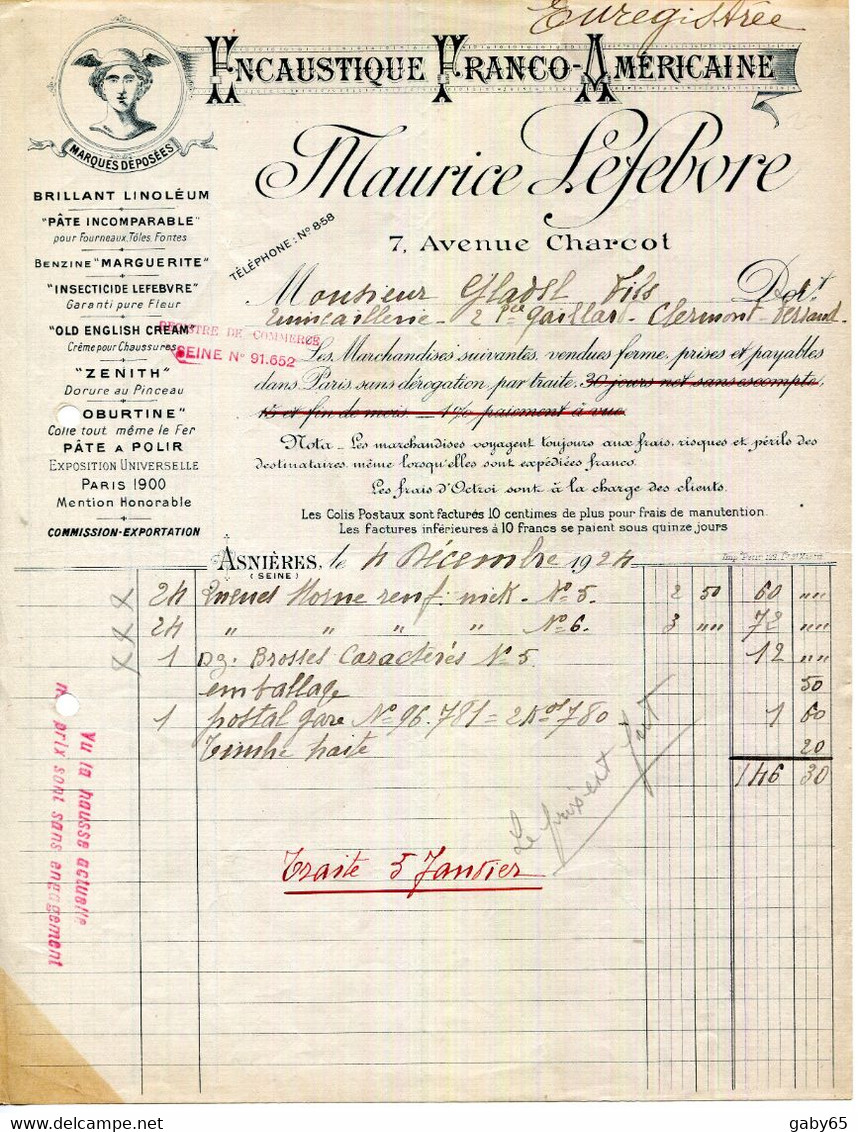 Enregistrée
ENCAUSTIQUE FRANCO-AMÉRICAINE
MARQUES DÉPOSÉES
Maurice Lefebvre
7, Avenue Charcot
TÉLÉPHONE: No 8-58
BRILLANT LINOLÉUM
"PÂTE INCOMPARABLE"
pour Fourneaux, Tôles, Fontes
BENZINE "MARGUERITE"
"INSECTICIDE LEFEBVRE"
Garanti pure Fleur
"OLD ENGLISH CREAM"
Crème pour Chaussures
"ZENITH"
Dorure au Pinceau
OBURTINE"
Colle tout même le Fer
PÂTE A POLIR
EXPOSITION UNIVERSELLE
PARIS 1900
Mention Honorable
COMMISSION-EXPORTATION
REGISTRE DE COMMERCE
SEINE No 91.652
Monsieur Fils Doit
Quincaillerie - 2 Pce Gaillard - Clermont-Ferrand
Les Marchandises suivantes, vendues ferme, prises et payables
dans Paris, sans dérogation, par traite, 30 jours net sans escompte,
15 et fin de mois. — 1% paiement à vue.
Nota - Les marchandises voyagent toujours aux frais, risques et périls des
destinataires, même lorsqu'elles sont expédiées franco.
Les frais d'Octroi sont à la charge des clients.
Les Colis Postaux sont facturés 10 centimes de plus pour frais de manutention.
Les factures inférieures à 10 francs se paient sous quinze jours
ASNIÈRES, le 4 Décembre 1924
(SEINE)
24 renf. nick. No 5. 2 50 60 """
24 " " " " No 6. 3 "" 72 """
1 Dz. Brosses Caractères No 5 12 """
emballage 50
1 postal gare No 96.781 = 780 1 60
Timbre traite 20
146 30
Le prix est fait
Traite 5 Janvier
Vu la hausse actuelle
prix sont sans engagement
gaby65